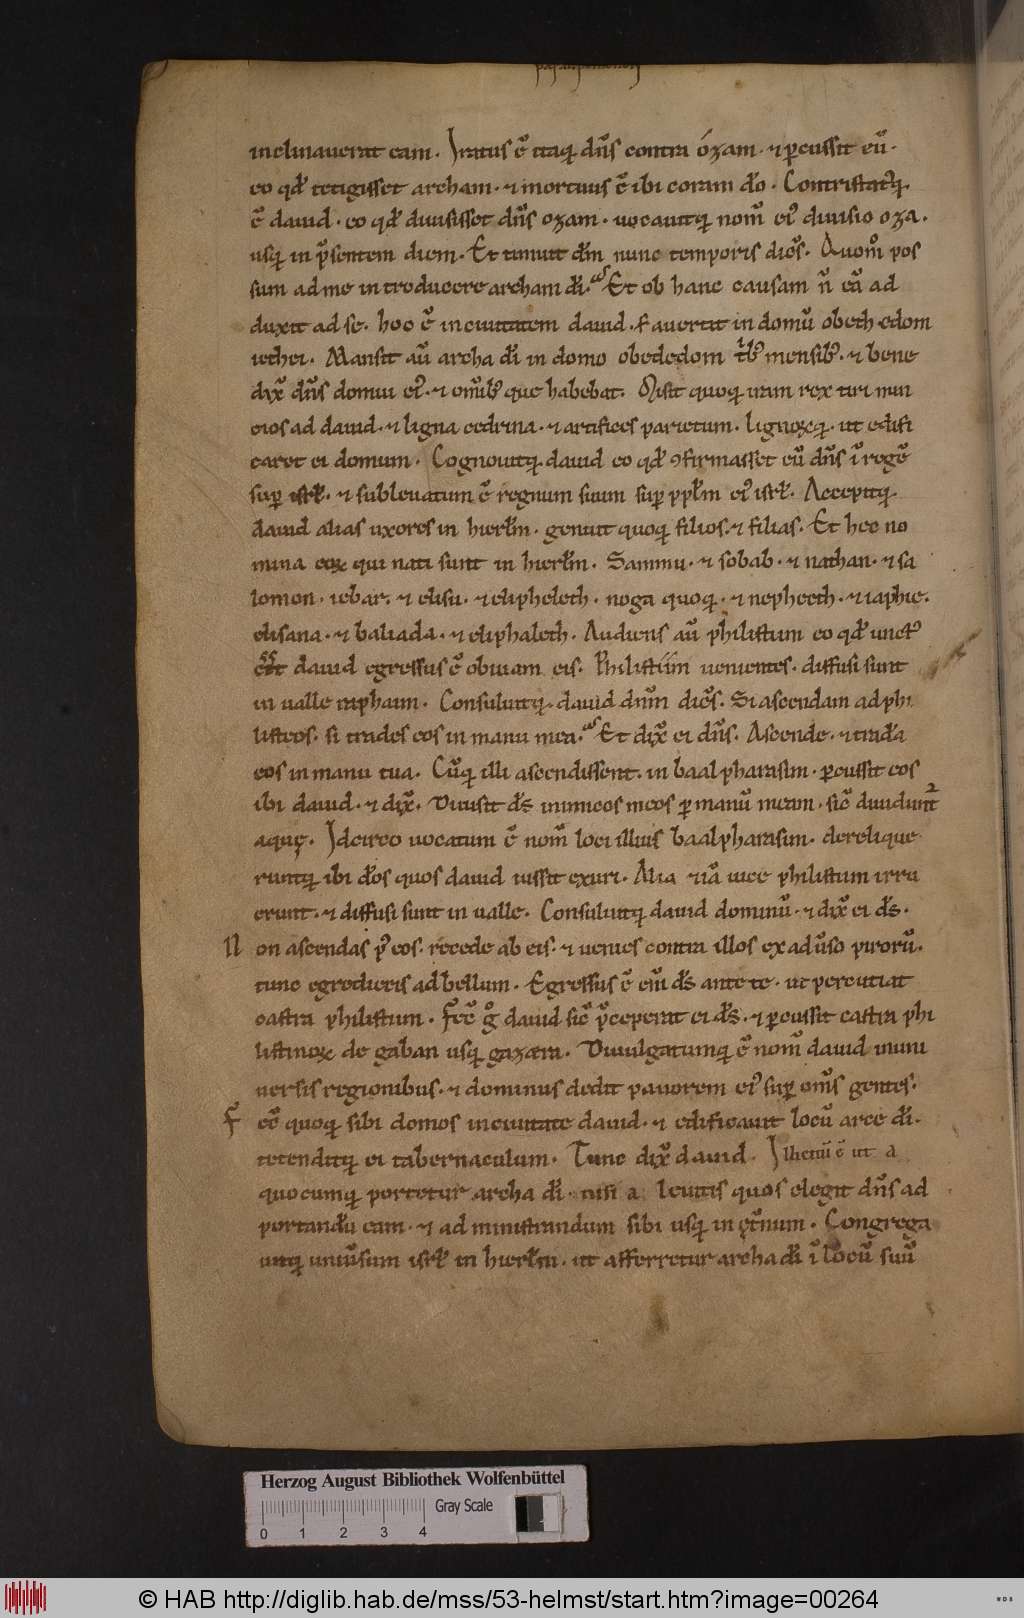 inclinauerat eam. Iratus ē itaq; dn̄s contra ózam. ⁊ ꝑcussit eū.
eo qđ tetigisset archam. ⁊ mortuus ē ibi coram dō. Contristatꝰq;
ē dauid. eo qđ diuisisset dn̄s ozam. uocauitq; nom̄ eiꝰ diuisio oza.
usq; in p̄sentem diem. Et timuit dm̄ nunc temporis dicēs. Quom̊ pos
sum ad me introducere archam dī. Et ob hanc causam ñ eā ad
duxit ad se. hoc ē in ciuitatem dauid. s; auertit in domū obeth edom
iethei. Mansit aū archa dī in domo obededom tⁱbꝰ mensibꝰ. ⁊ bene
dix̄ dn̄s domui eiꝰ. ⁊ om̄ibꝰ que habebat. Misit quoq; iram rex tiri nun
cios ad dauid. ⁊ ligna cedrina. ⁊ artifices parietum. lignoꝝq;. ut edifi
caret ei domum. Cognouitq; dauid eo qđ ꝯfirmasset eū dn̄s ī regē
suꝑ isrł. ⁊ subleuatum ē regnum suum suꝑ ppl̄m eiꝰ isrł. Accepitq;
dauid alias uxores in hierl̄m. genuit quoq; filios. ⁊ filias. Et hec no
mina eoꝝ qui nati sunt in hierl̄m. Sammu. ⁊ sobab. ⁊ nathan. ⁊ sa
lomon. iebar. ⁊ elisu. ⁊ eliphelech. noga quoq;. ⁊ nepheeth. ⁊ iaphie.
elisana. ⁊ baliada. ⁊ eliphaleth. Audiens aū philistum eo qđ unctꝰ
eēt dauid egressus ē obuiam eis. Philistiim uenientes. diffusi sunt
in ualle raphaim. Consuluitq; dauid dnm̄ dicēs. Si ascendam ad phi
listeos. si trades eos in manu mea. Et dix̄ ei dn̄s. Ascende. ⁊ tradā
eos in manu tua. Cūq; illi ascendissent. in baal pharasim. ꝑcussit eos
ibi dauid. ⁊ dix̄. Diuisit dс̄ inimicos meos ꝑ manū meam. sic̄ diuidunt᷑
aquę. Idcirco uocatum ē nom̄ loci illius baalpharasim. derelique
runtq; ibi dōs quos dauid iussit exuri. Alia etiā uice philistum irru
erunt. ⁊ diffusi sunt in ualle. Consuluitq; dauid dominū. ⁊ dix̄ ei dс̄.
N on ascendas p̄ eos. recede ab eis. ⁊ uenies contra illos ex adūso pirorū.
tunc egredieris ad bellum. Egressus ē em̄ dс̄ ante te. ut percutiat
castra philistum. Fēc g̊ dauid sic̄ p̄ceperat ei dс̄. ⁊ ꝑcussit castra phi
listinoꝝ de gaban usq; gazæra. Diuulgatumq; ē nom̄ dauid in uni
uersis regionibus. ⁊ dominus dedit pauorem eiꝰ suꝑ om̄s gentes.
F ēc quoq; sibi domos in ciuitate dauid. ⁊ edificauit locū arce dī.
tetenditq; ei tabernaculum. Tunc dix̄ dauid. Illicitū ē ut a
quocumq; portetur archa dī. nisi a leuitis quos elegit dn̄s ad
portandū eam. ⁊ ad ministrandum sibi usq; in ęt̄num. Congrega
uitq; uniūsum isrł in hierl̄m. ut afferretur archa dī ī locū suū
Herzog August Bibliothek Wolfenbüttel
Gray Scale
0 1 2 3 4
© HAB http://diglib.hab.de/mss/53-helmst/start.htm?image=00264